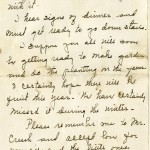 with it.
I hear signs of dinner and
must get ready to go down stairs.
I suppose you all will soon
be getting ready to make garden
and do the planting on the farm
I certainly hope they will be
fruit this year. We have certainly
missed it during the winter.
Please remember me to Mr.
Crush and accept love for